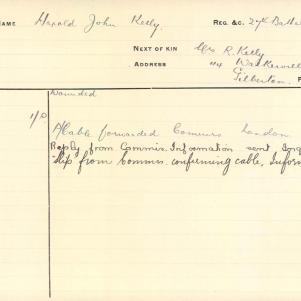 NAME Harold John Kelly. REG. &C. 27th Battal
NEXT OF KIN Mrs R. Kelly
ADDRESS "4 Walkervill
Gilberton.
Wounded
A/Cable forwarded Commrs London
Reply from Commrs. Information sent
Slip from Commrs. confirming cable, Inform